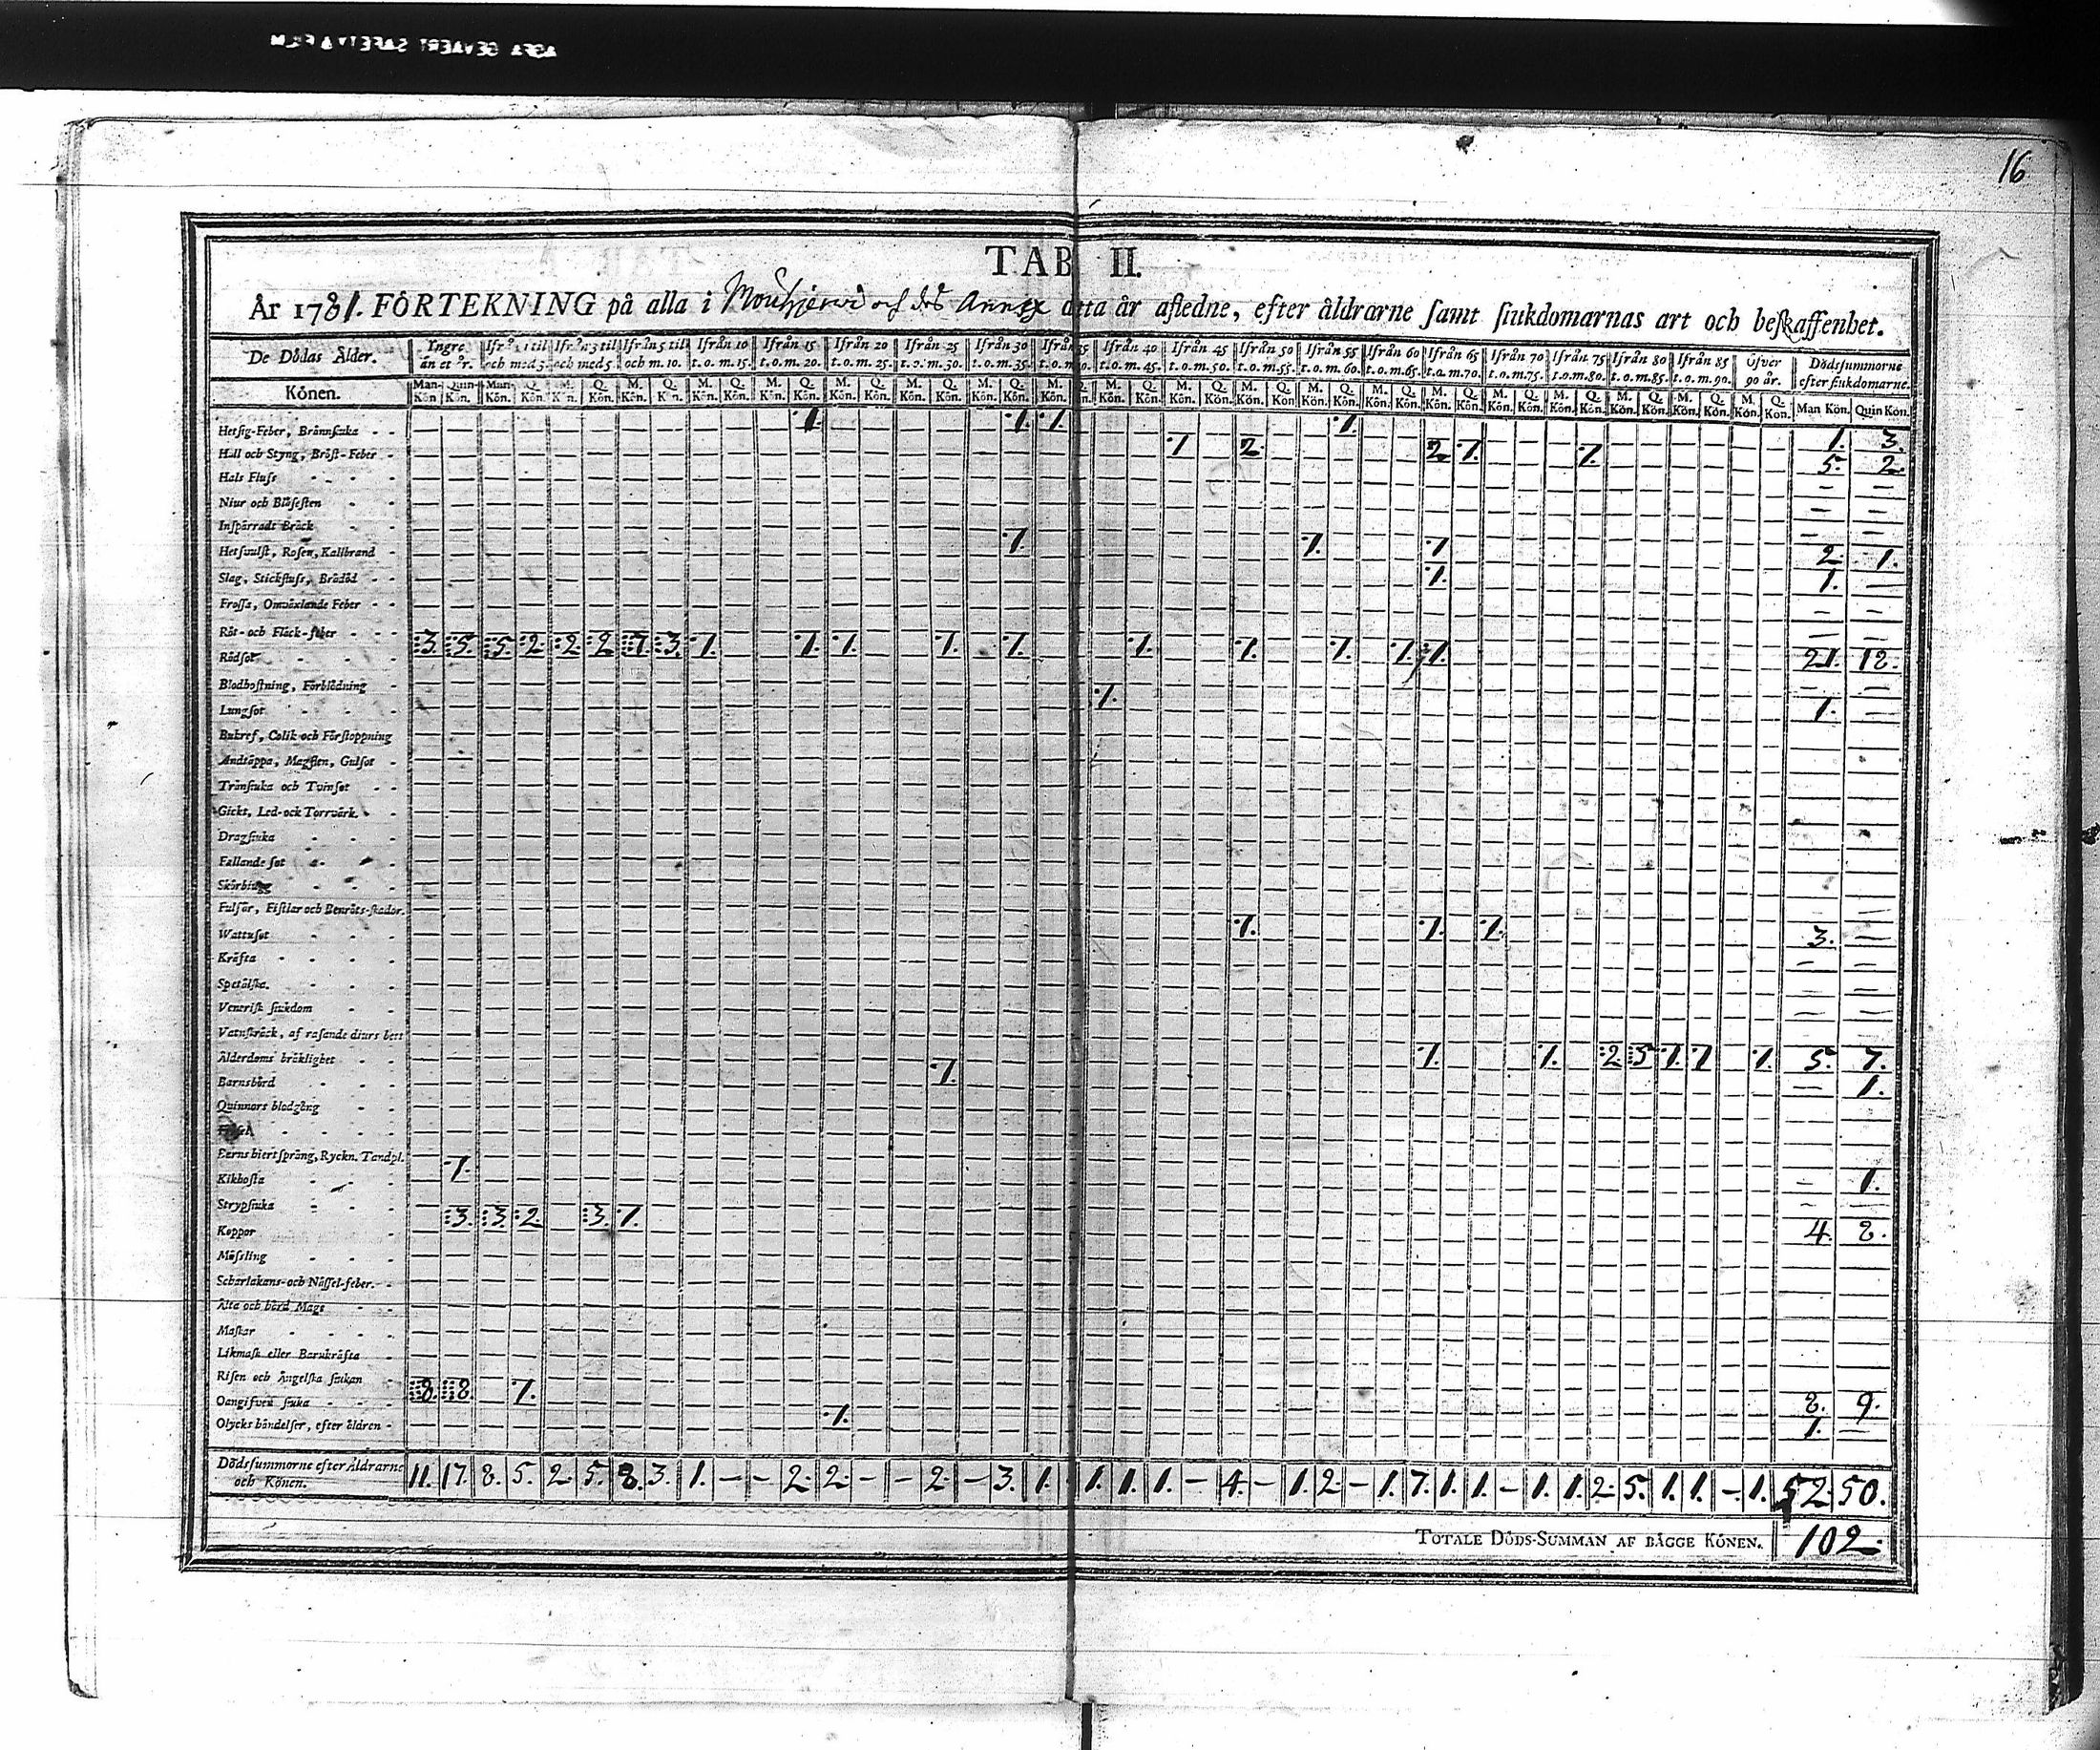 AGFA GEVAERT SAFETY FILM
16
TAB II.
År 1781. FÖRTEKNING på alla i Mouhijerwi och des Annex detta år afledne, efter åldrarne samt siukdomarnas art och beskaffenhet.
De Dödas Ålder. Yngre än et år. Ifrån 1 til och med 3. Ifrån 3 til och med 5. Ifrån 5 til och m. 10. Ifrån 10 t.o.m. 15. Ifrån 15 t.o.m. 20. Ifrån 20 t.o.m. 25. Ifrån 25 t.o.m. 30. Ifrån 30 t.o.m. 35. Ifrån 35 t.o.m. 40. Ifrån 40 t.o.m. 45. Ifrån 45 t.o.m. 50. Ifrån 50 t.o.m. 55. Ifrån 55 t.o.m. 60. Ifrån 60 t.o.m. 65. Ifrån 65 t.o.m. 70. Ifrån 70 t.o.m. 75. Ifrån 75 t.o.m. 80. Ifrån 80 t.o.m. 85. Ifrån 85 t.o.m. 90. Öfver 90 år. Dödssummorne efter siukdomarne.
Könen. Man-Kön Quin-Kön. Man. Kön. Q. Kön. M. Kön. Q. Kön. M. Kön. Q. Kön. M. Kön. Q. Kön. M. Kön. Q. Kön. M. Kön. Q. Kön. M. Kön. Q. Kön. M. Kön. Q. Kön. M. Kön. Q. Kön. M. Kön. Q. Kön. M. Kön. Q. Kön. M. Kön. Q. Kön. M. Kön. Q. Kön. M. Kön. Q. Kön. M. Kön. Q. Kön. M. Kön. Q. Kön. M. Kön. Q. Kön. M. Kön. Q. Kön. M. Kön. Q. Kön. M. Kön. Q. Kön. Man Kön. Quin Kön.
Hetsig-Feber, Brännsiuka 1. 1. 1. 1. 1. 3.
Håll och Styng, Bröst-Feber 1 2. 2. 1. 1. 5. 2.
Hals Fluss
Niur och Blåsesten
Inspärradt Bråck
Hetsvulst, Rosen, Kallbrand 1. 1. 1 2. 1.
Slag, Stickfluss, Brådöd 1. 1.
Frossa, Omväxlande Feber
Röt- och Fläck-feber
Rödsot 3. 5. 5. 2. 2. 2 7. 3. 1. 1. 1. 1. 1. 1. 1. 1. 1. 1. 21. 12.
Blodhostning, Förblödning
Lungsot 1. 1.
Bukref, Colik och Förstoppning
Andtäppa, Magsten, Gulsot
Tränsiuka och Tvinsot
Gickt, Led-och Torrvärk.
Dragsiuka
Fallande sot
Skörbiugg
Fulsår, Fistlar och Benröts-skador.
Wattusot 1. 1. 1. 3.
Kräfta
Spetälska.
Venerisk siukdom
Vatnskräck, af rasande diurs bett
Ålderdoms bräklighet 1. 1. 2 5 1. 1 1. 5. 7.
Barnsbörd 1. 1.
Quinnors blodgång
Barns hiertsprång, Ryckn. Tandpl.
Kikhosta 1. 1.
Strypsiuka
Koppor 3. 3. 2 3. 1. 4. 8.
Mässling
Scharlakans-och Nässel-feber.
Älta och hård Mage
Maskar
Likmask eller Barnkräfta
Risen och Ängelska siukan
Oangifven siuka 8. 8. 1. 8. 9.
Olycks händelser, efter åldren 1. 1.
Dödssummorne efter Åldrarne och Könen. 11. 17. 8. 5. 2. 5. 8. 3. 1. – – 2. 2. – – 2. – 3. 1. 1. 1. 1. – 4. – 1. 2 – 1. 7. 1. 1. – 1. 1. 2. 5. 1. 1. – 1. 52. 50.
TOTALE DÖDS-SUMMAN AF BÄGGE KÖNEN. 102.